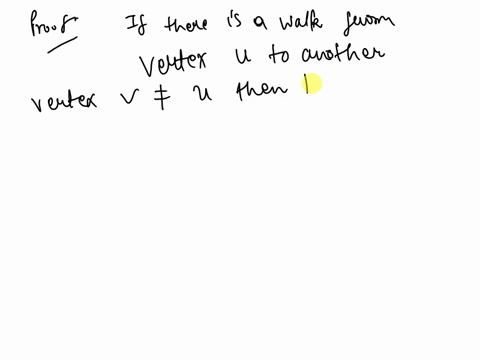 Proof If there is a walk from
vertex u to another
vertex v ≠ u then